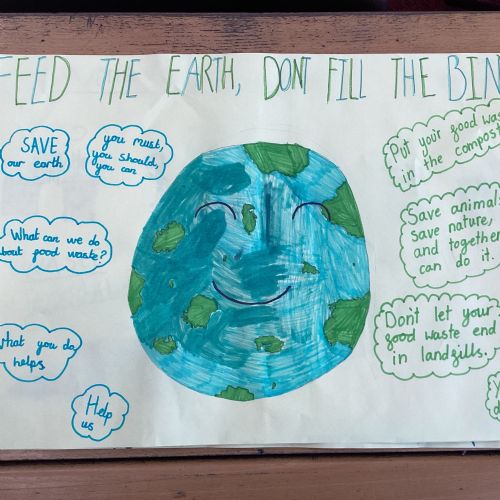 FEED THE EARTH, DONT FILL THE BIN
SAVE
our earth
you must,
you should,
you can
What can we do
about food waste?
what you do
helps
Help
us
Put your food was
in the compos
Save animals
save nature,
and together
can do it.
Don't let your
food waste end
in landfills.